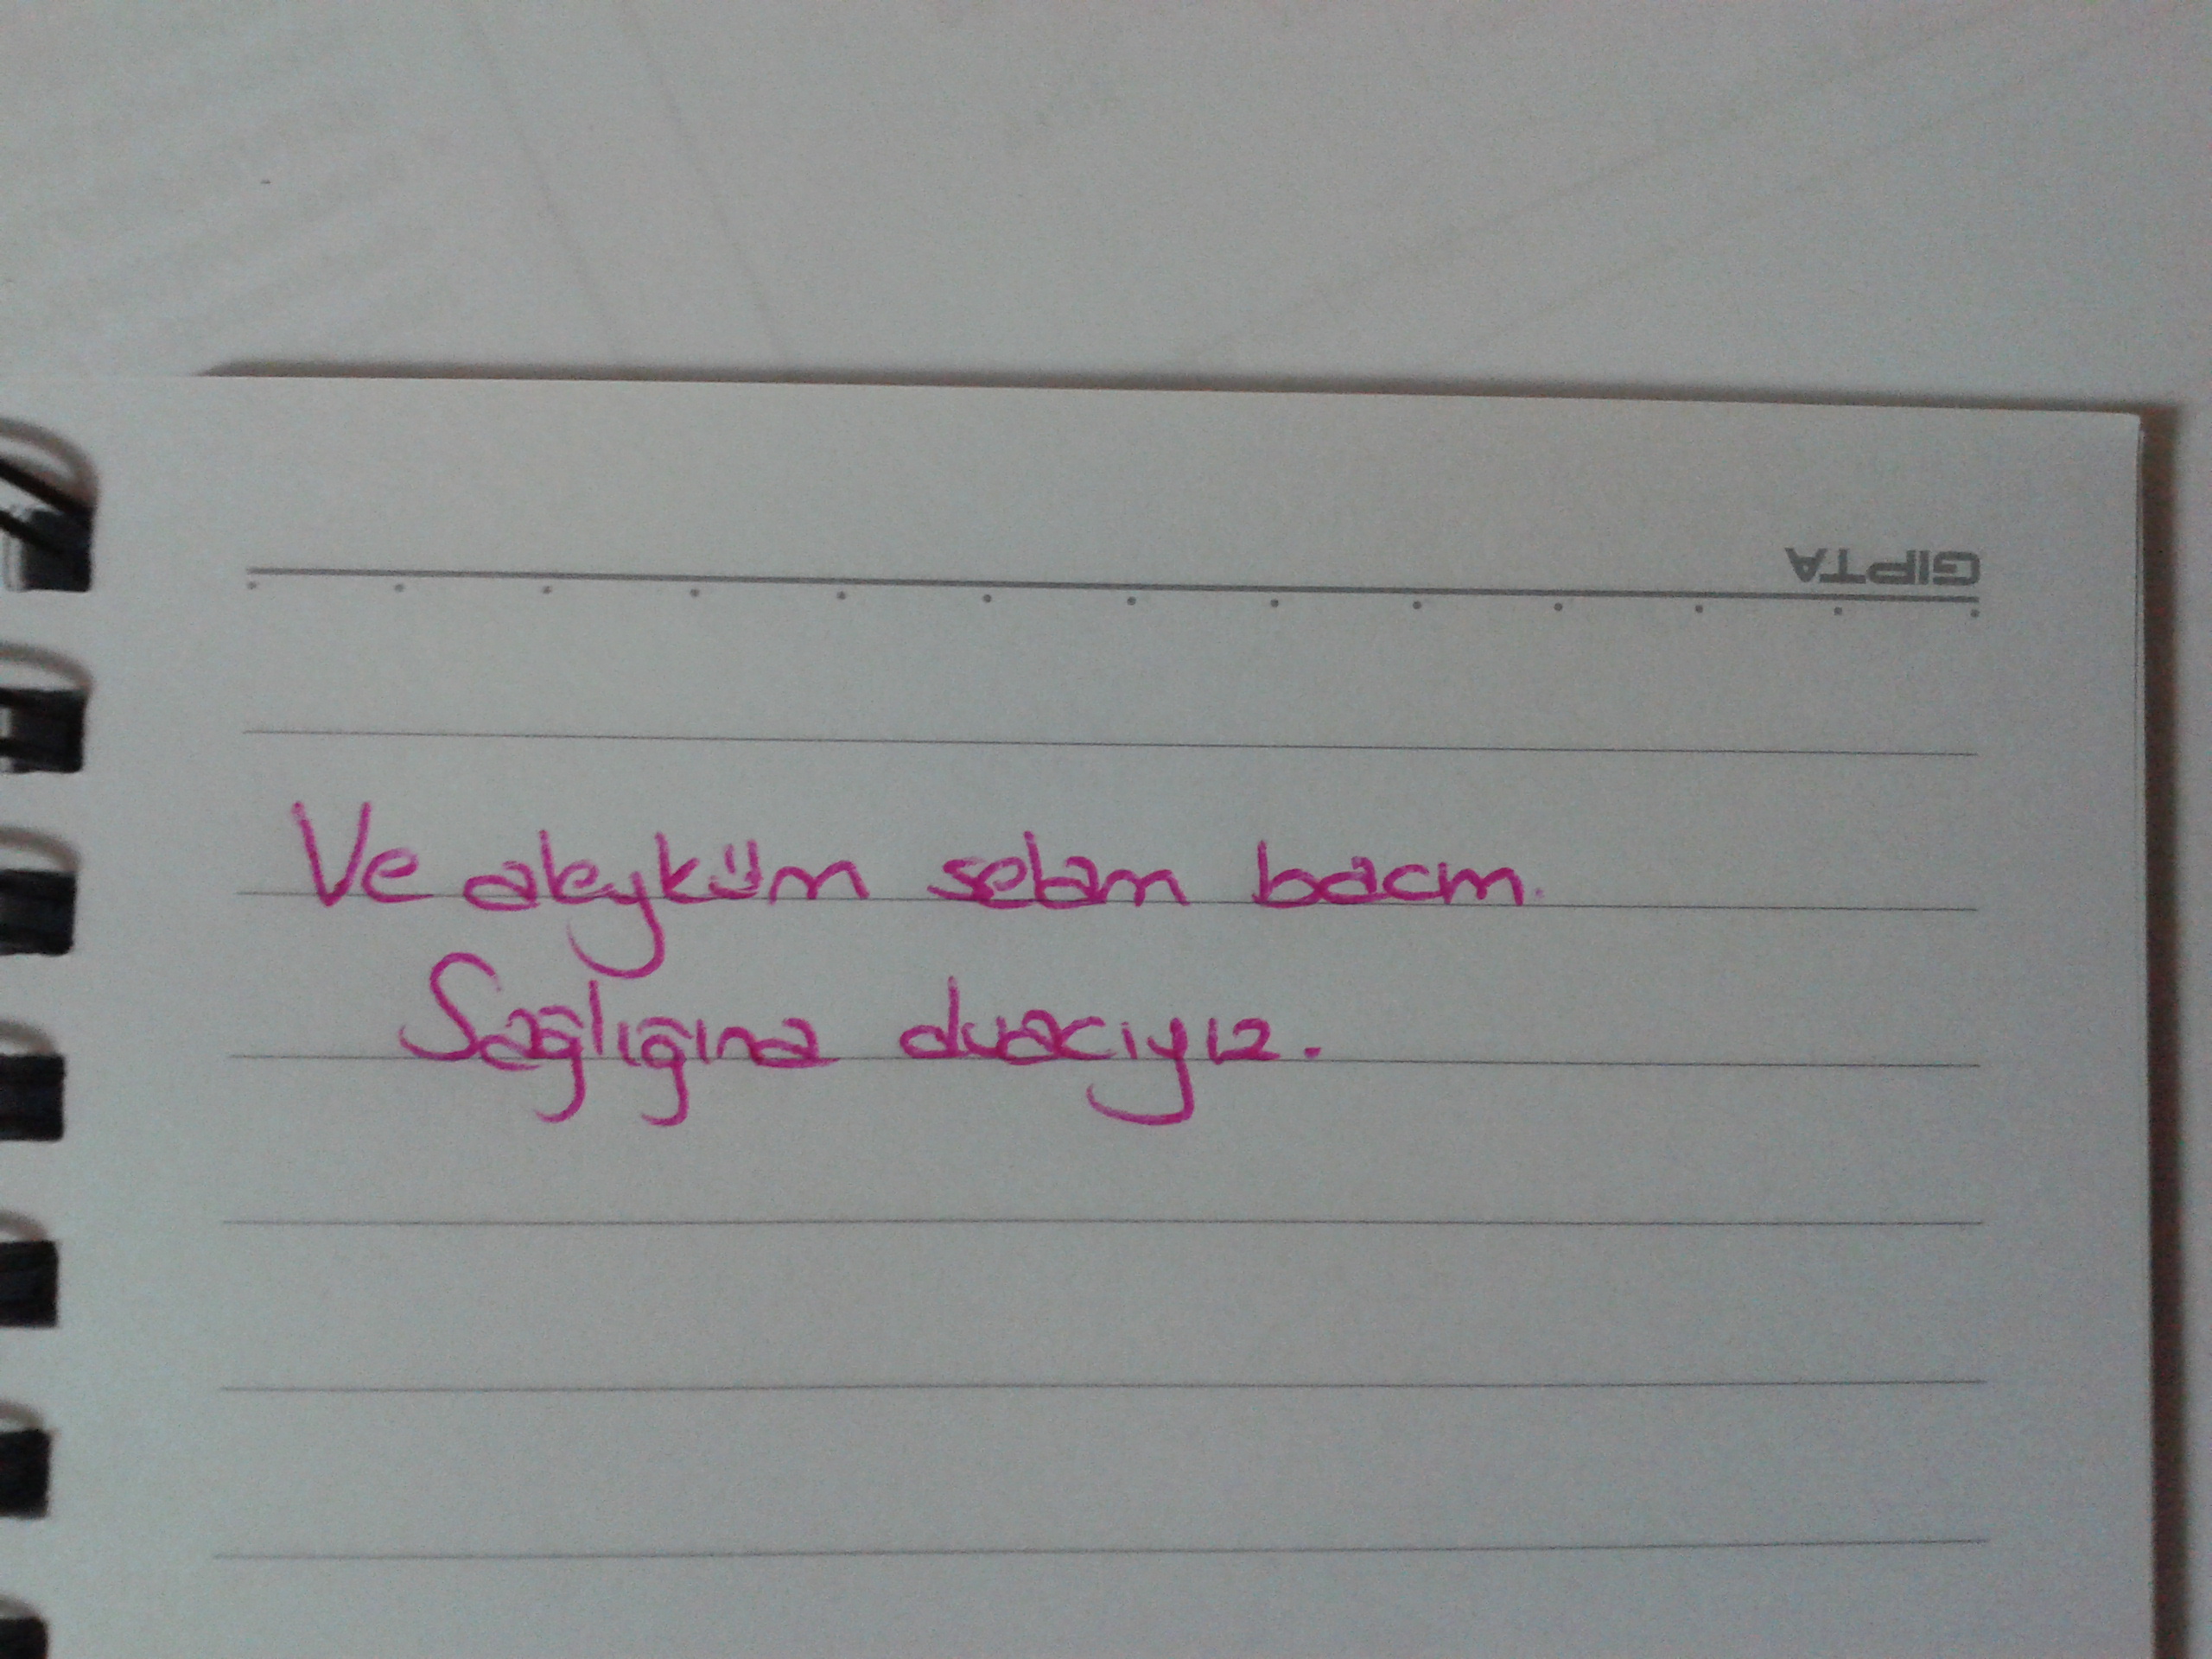 GIPTA
Ve aleyküm selam bacım.
Sağlığına duacıyız.